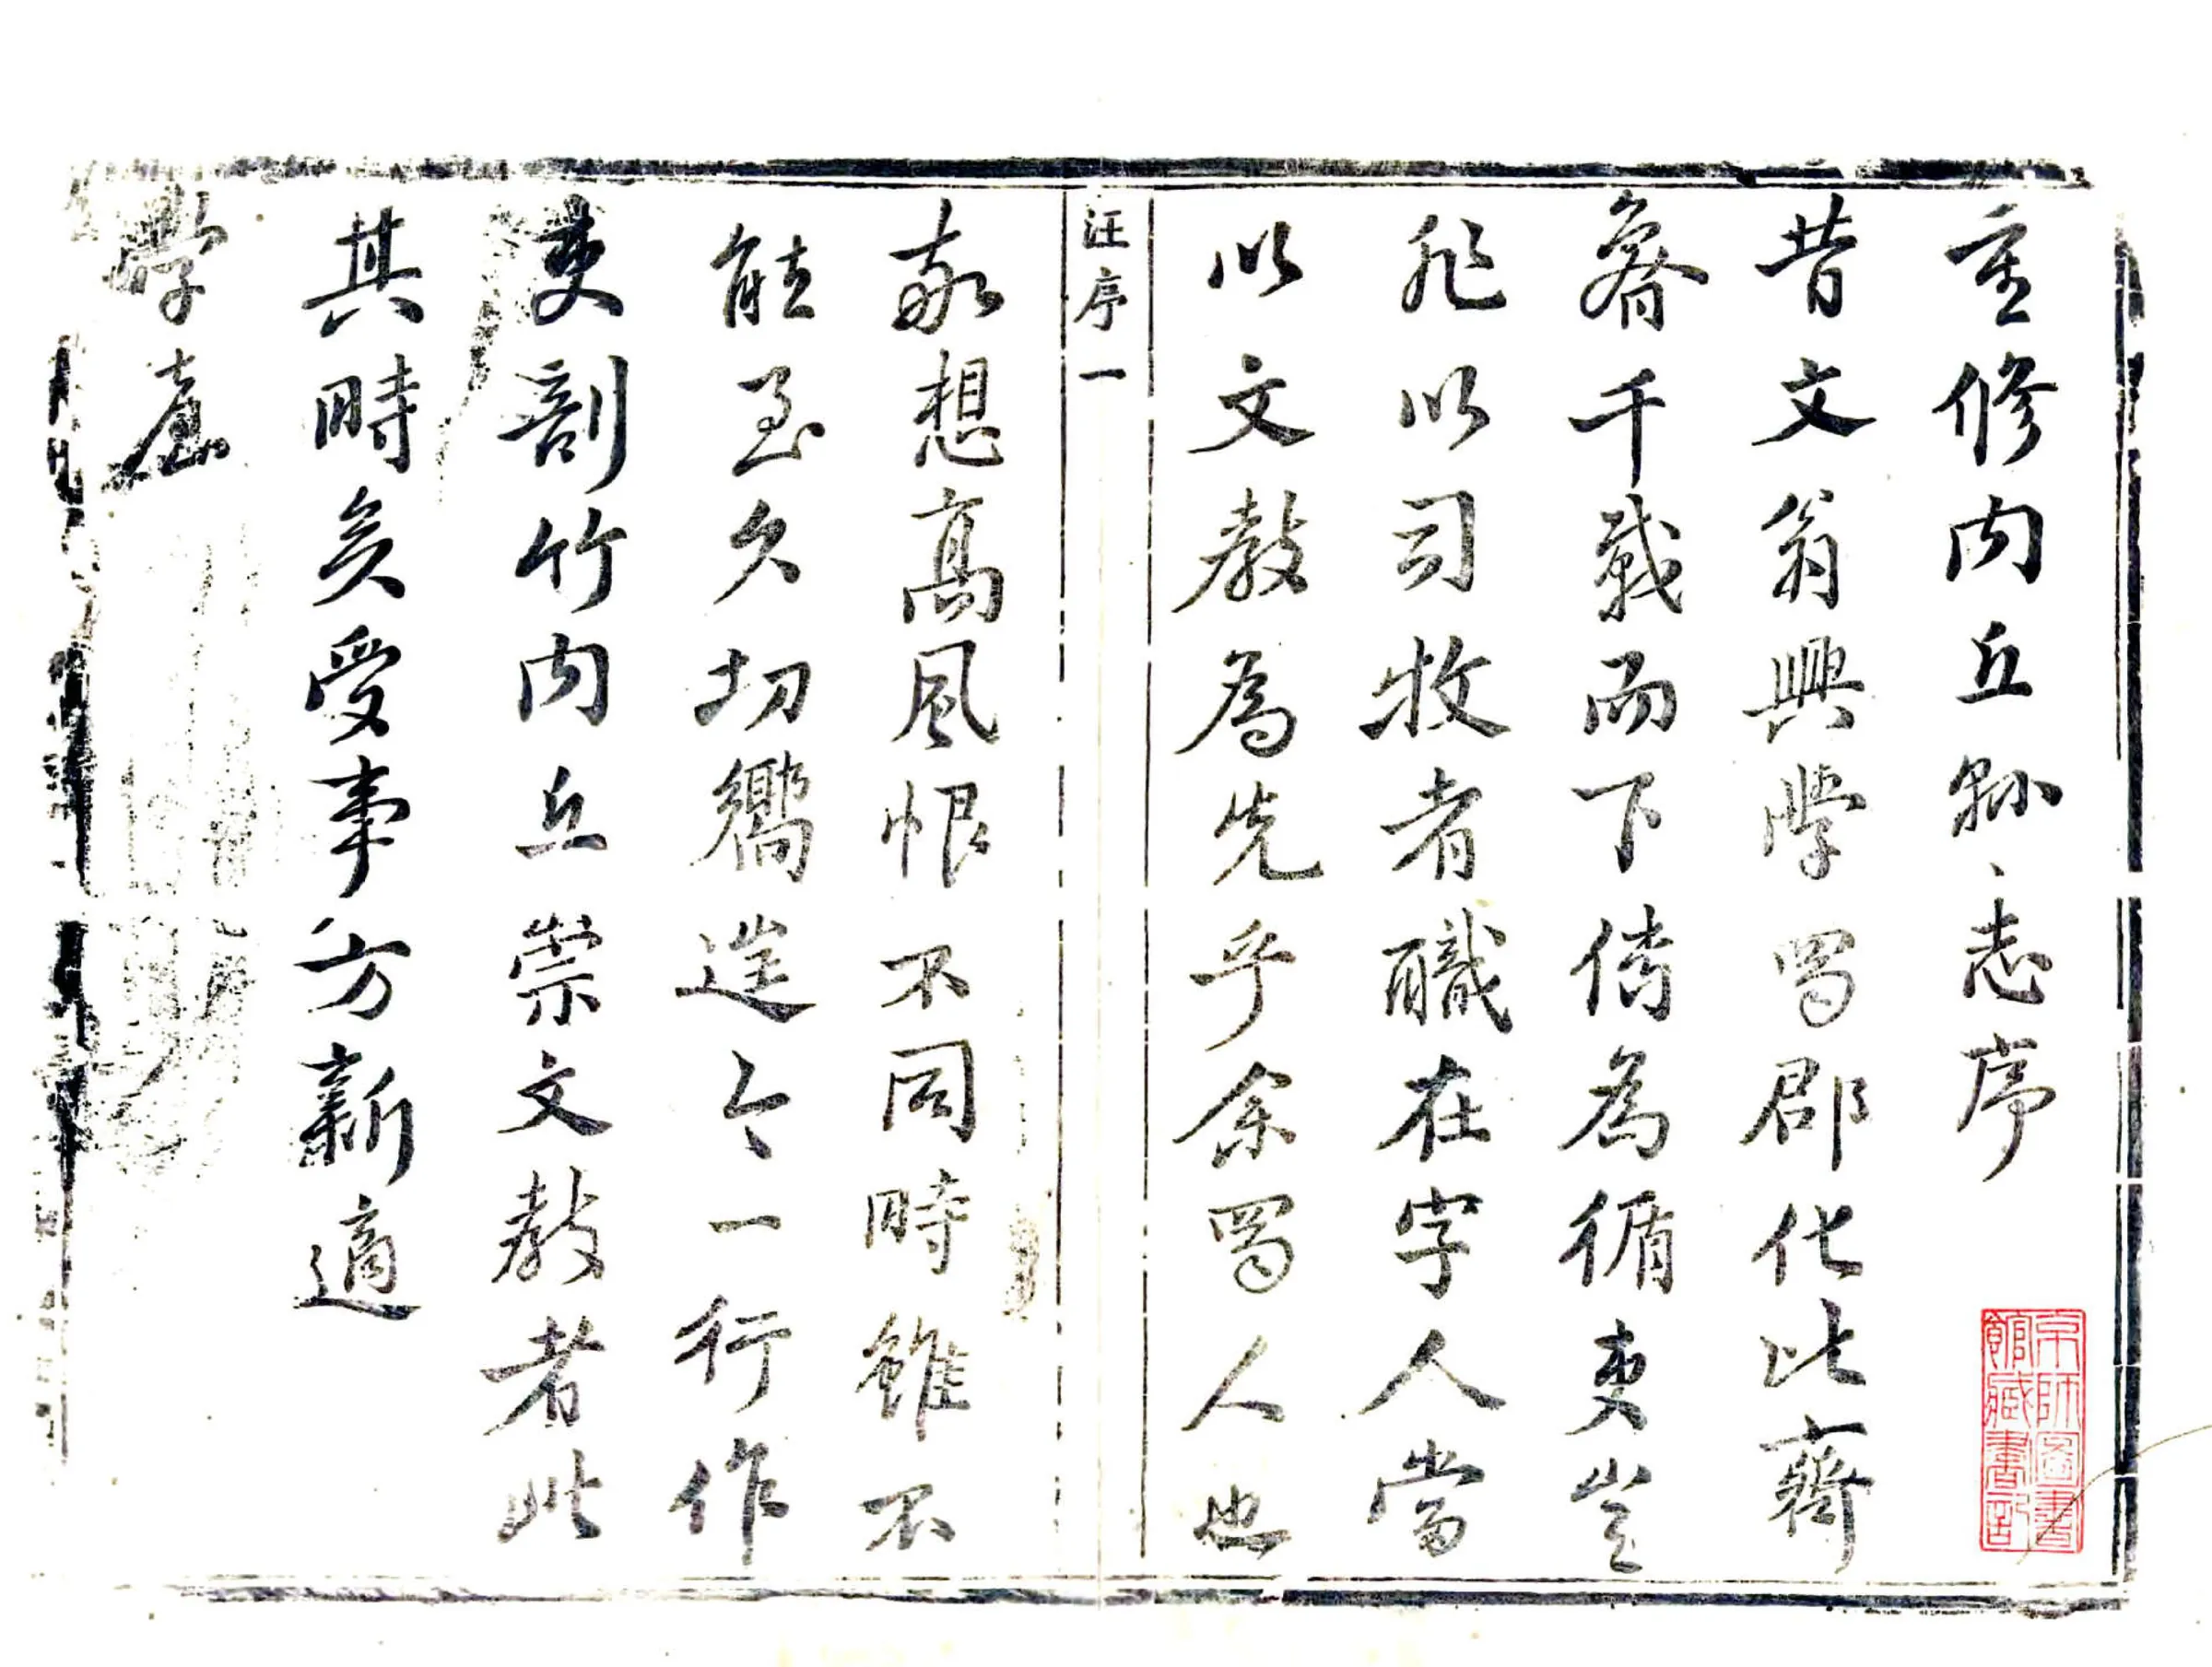 重修内丘縣志序
昔文翁興學蜀郡化比齊
魯千載而下偁為循吏豈
非以司牧者職在字人當
以文教為先乎余蜀人也
汪序一
敬想高風恨不同時雖不
能至久切嚮逞今一行作
吏剖竹内丘崇文教者此
其時矣受事方新適
學憲
京師圖書
館藏書記